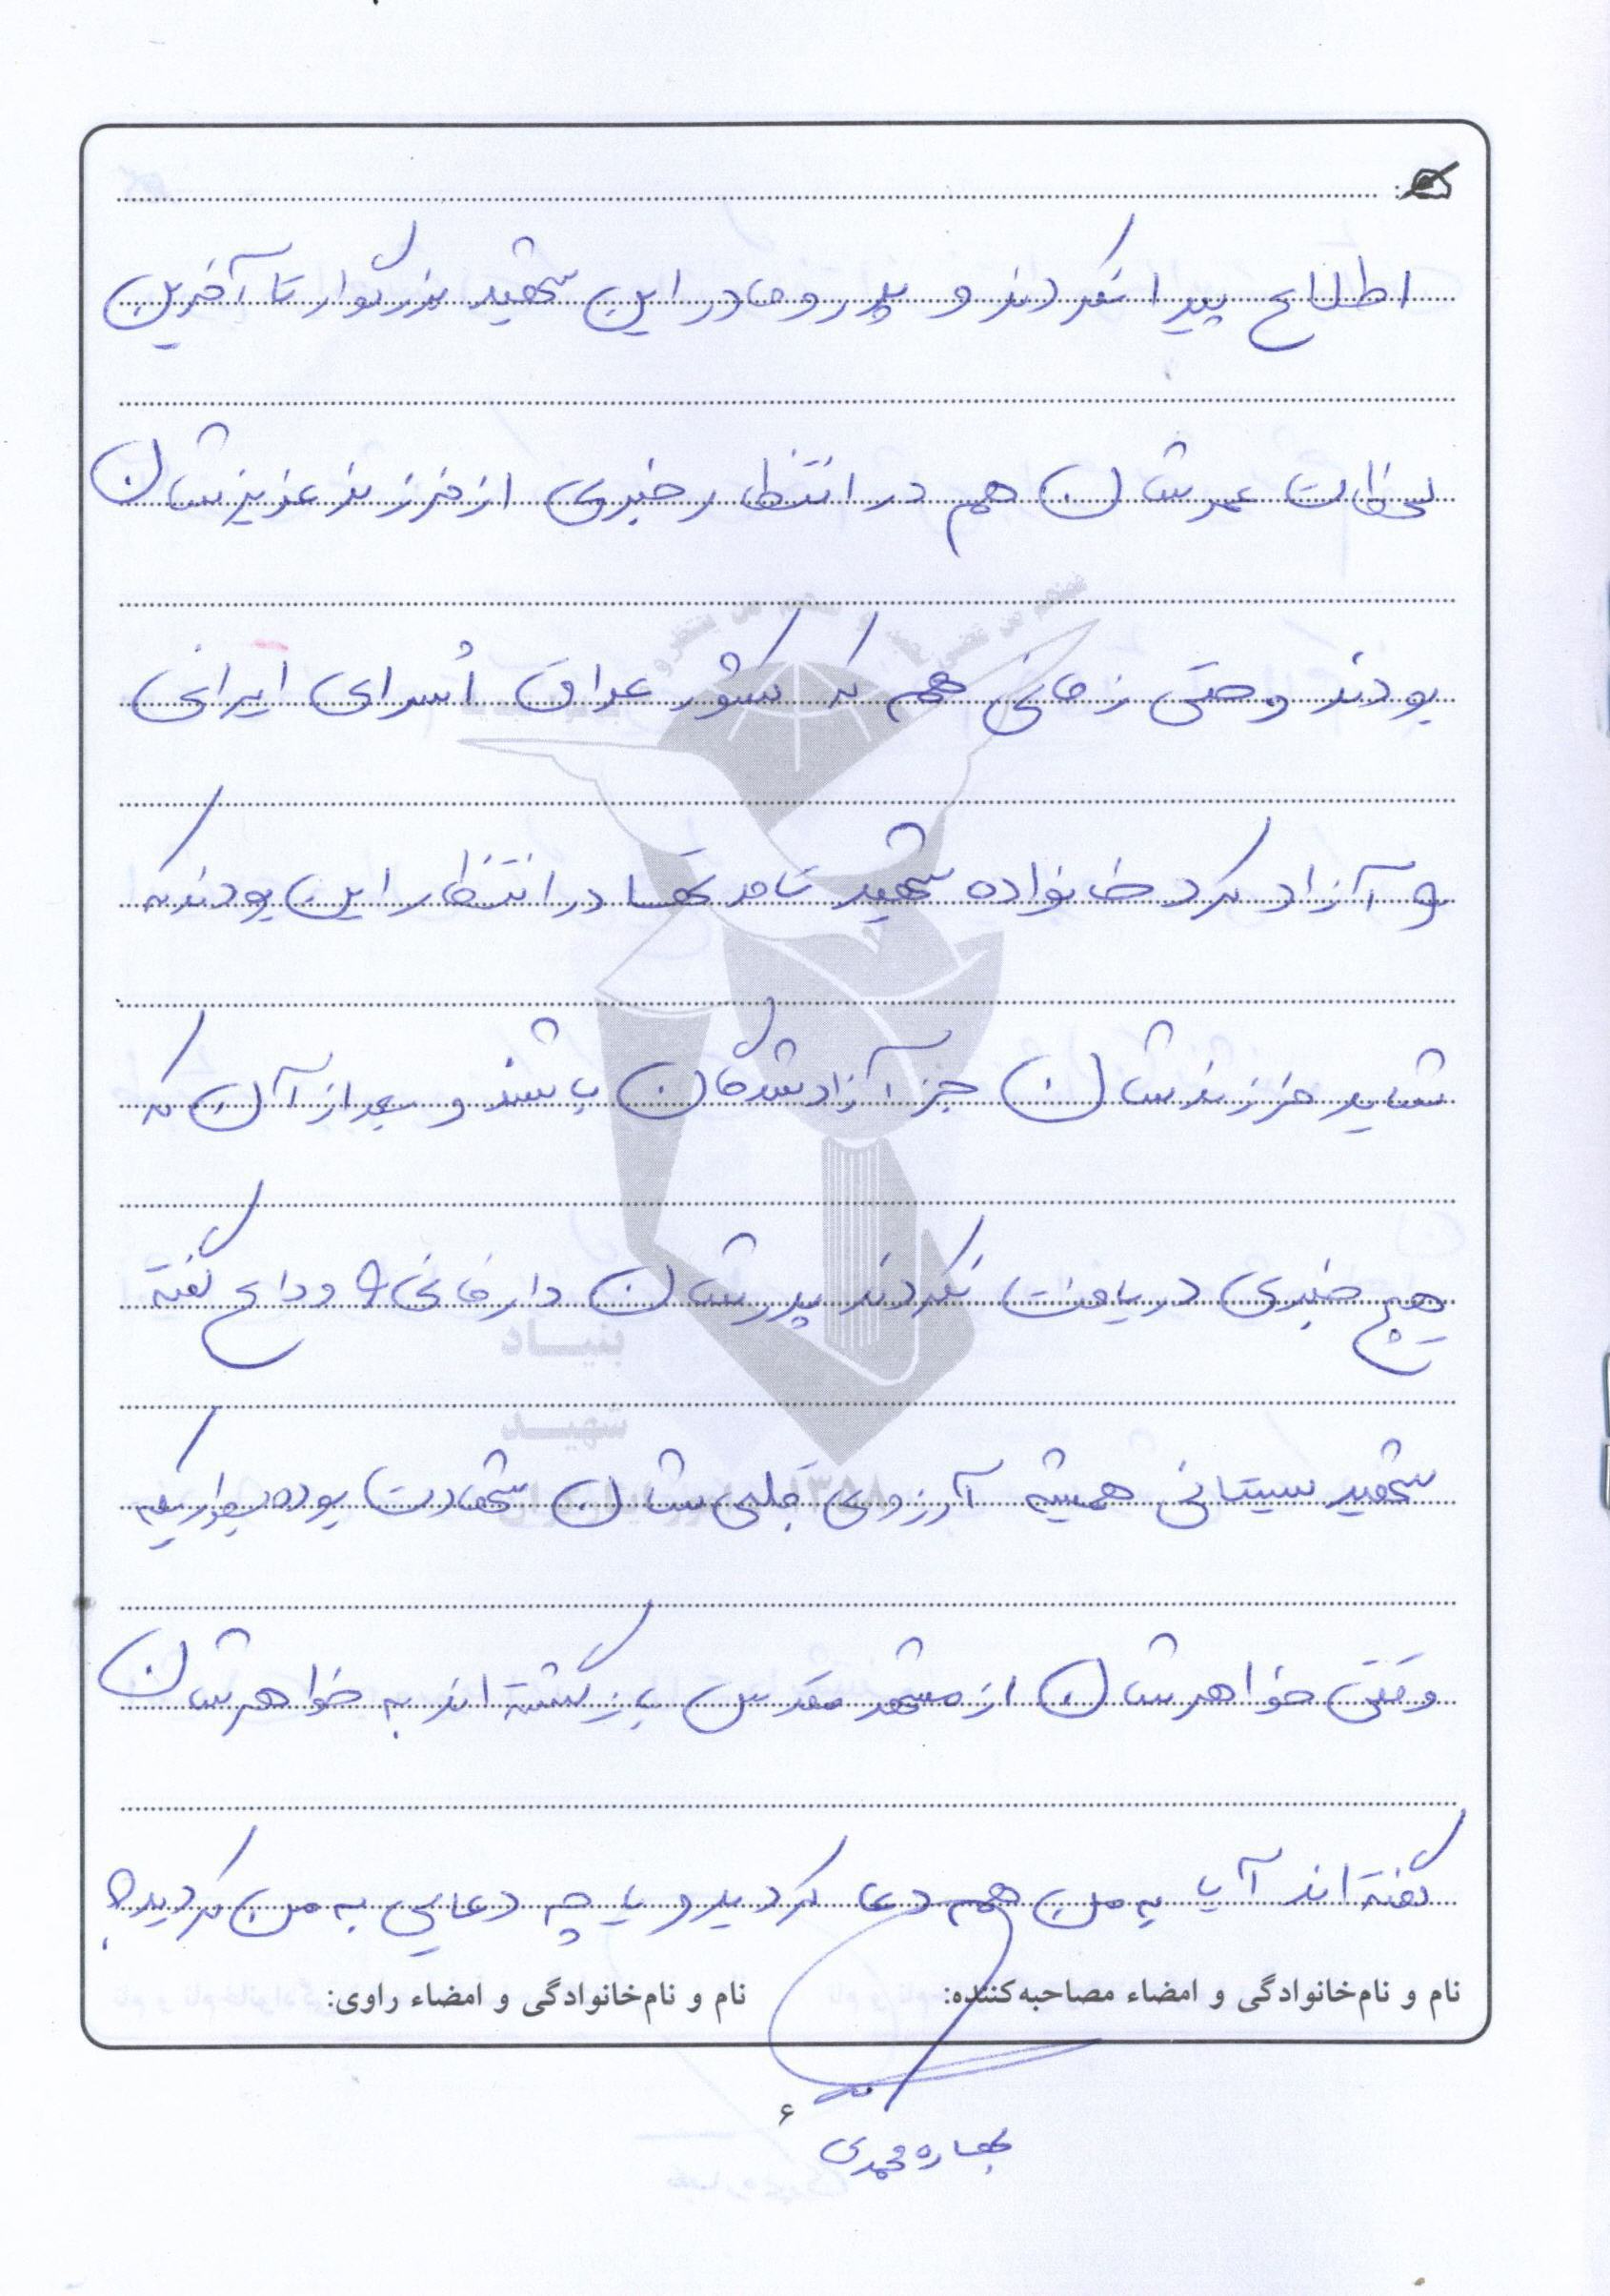 اطلاع پیدا نکردند و پدر و مادر این شهید بزرگوار تا آخرین
لحظات عمرشان هم در انتظار خبری از فرزند عزیزشان
بودند و حتی زمانی هم که کشور عراق اُسرای ایرانی
و آزاد کرد خانواده شهید تا مدتها در انتظار این بودند که
شاید فرزندشان جز آزادشدگان باشند و بعد از آن که
هیچ خبری دریافت نکردند پدرشان دار فانی و وداع گفته
شهید سیستانی همیشه آرزوی قلبی‌شان شهادت بوده بطوریکه
وقتی خواهرشان از مشهد مقدس بازگشته‌اند به خواهرشان
گفته‌اند آیا به من هم دعا کردید و یا چه دعایی به من کردید؟
نام و نام‌خانوادگی و امضاء مصاحبه‌کننده: نام و نام‌خانوادگی و امضاء راوی:
۶
بهاره محمدی